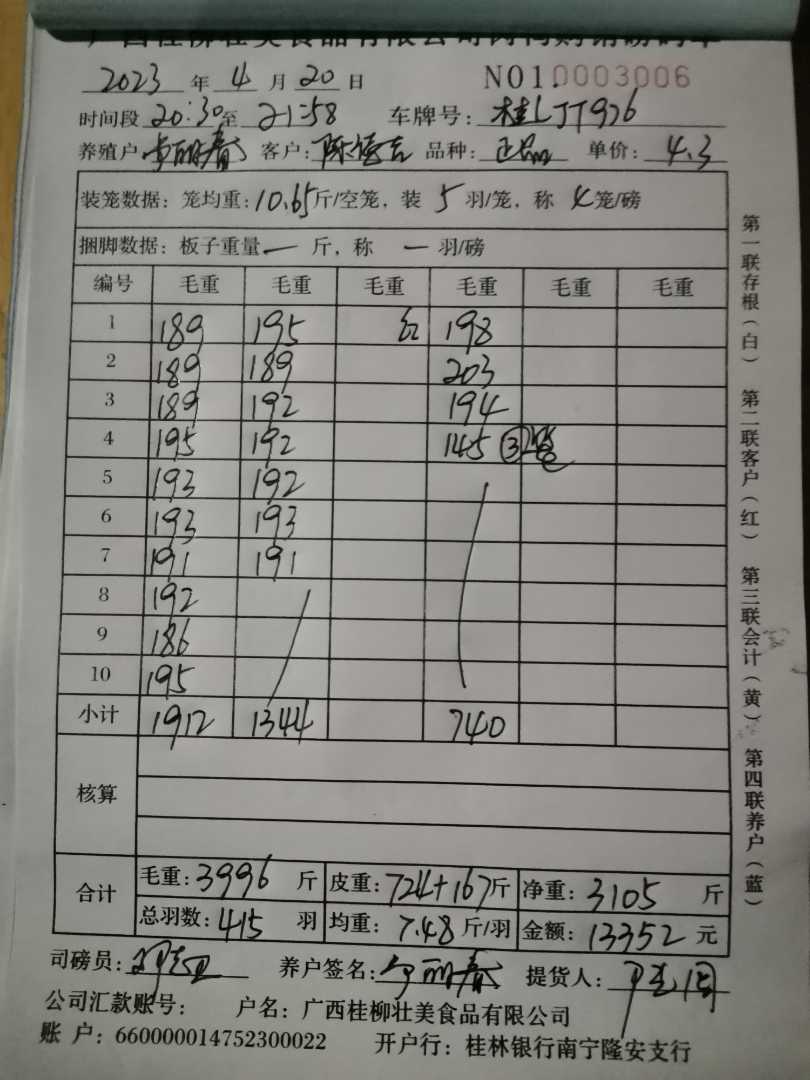 广西桂柳壮美食品有限公司肉鸭购销磅码单
2023 年 4 月 20 日 NO1.0003006
时间段 20:30 至 21:58 车牌号: 桂LJT926
养殖户 丽春 客户: 陈 品种: 正品 单价: 4.3
装笼数据: 笼均重: 10.65 斤/空笼, 装 5 羽/笼, 称 4 笼/磅
捆脚数据: 板子重量 一 斤, 称 一 羽/磅
编号 毛重 毛重 毛重 毛重 毛重 毛重
1 189 195 198
2 189 189 203
3 189 192 194
4 195 192 145 ③笼
5 193 192
6 193 193
7 191 191
8 192
9 186
10 195
小计 1912 1344 740
核算
合计 毛重: 3996 斤 皮重: 724+167 斤 净重: 3105 斤
总羽数: 415 羽 均重: 7.48 斤/羽 金额: 13352 元
司磅员: 养户签名: 丽春 提货人:
公司汇款账号: 户名: 广西桂柳壮美食品有限公司
账 户: 660000014752300022 开户行: 桂林银行南宁隆安支行
第一联存根(白) 第二联客户(红) 第三联会计(黄) 第四联养户(蓝)